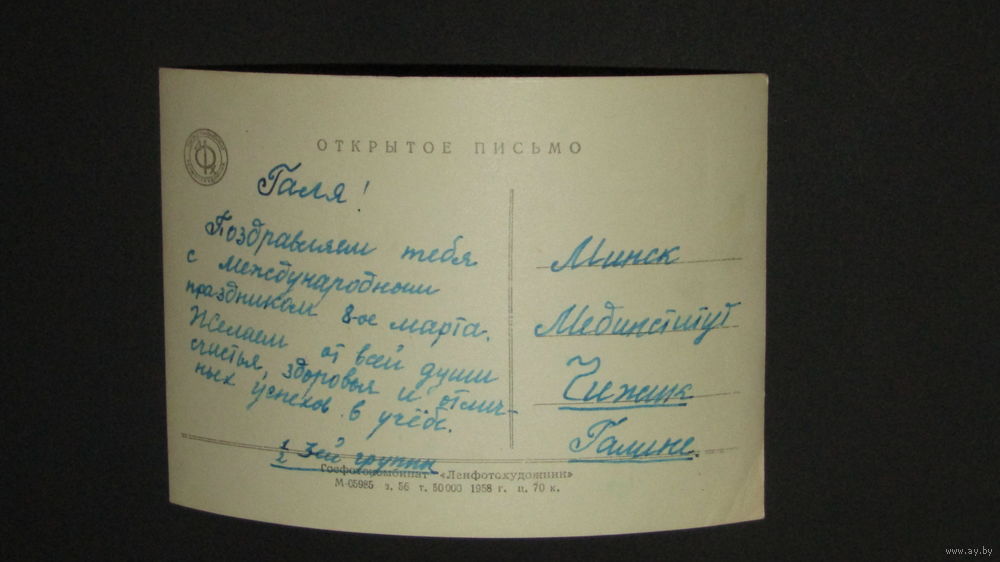 ОТКРЫТОЕ ПИСЬМО
Галя!
Поздравляем тебя
с международным
праздником 8-ое марта.
Желаем от всей души
счастья, здоровья и отлич-
ных успехов в учёбе.
1/2 3ей группы
Минск
Мединститут
Чижик
Галине.
Госфотокомбинат «Ленфотохудожник»
М-05985 з. 56 т. 50 000 1958 г. ц. 70 к.
www.ay.by